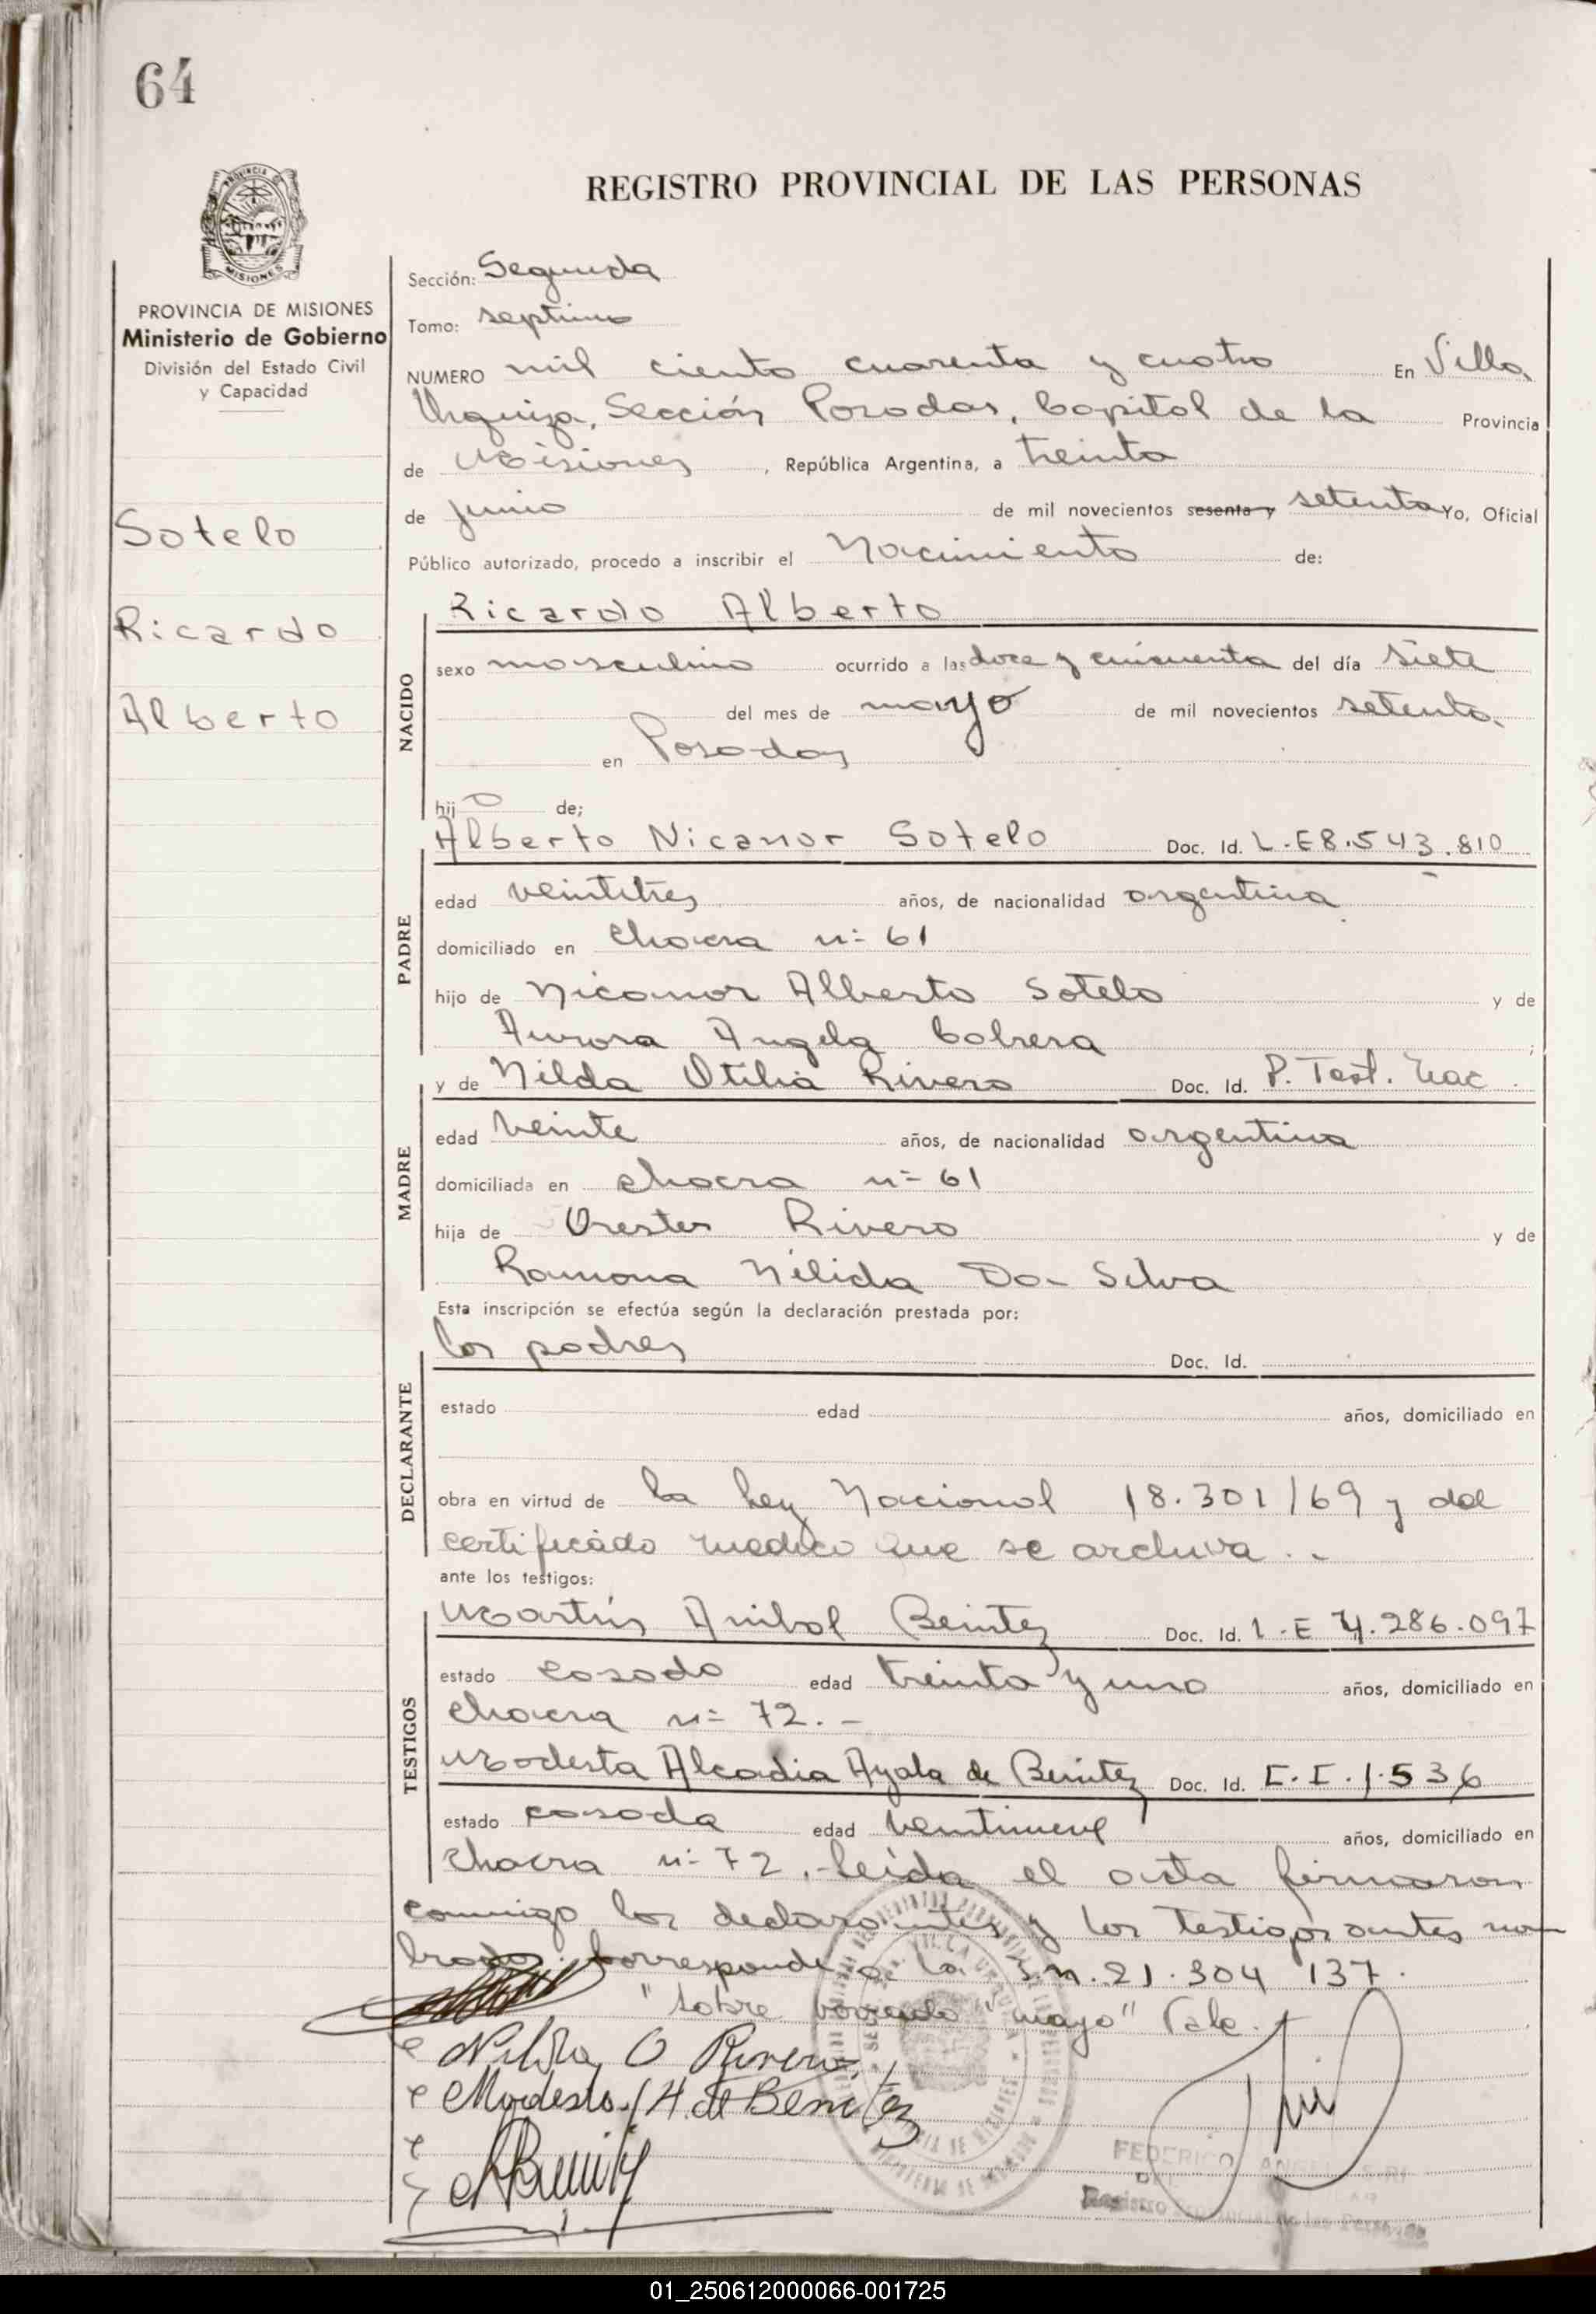 64
REGISTRO PROVINCIAL DE LAS PERSONAS
PROVINCIA DE MISIONES
Ministerio de Gobierno
División del Estado Civil
y Capacidad
Sotelo
Ricardo
Alberto
Sección: Segunda
Tomo: septimo
NUMERO mil ciento cuarenta y cuatro En Villa
Urquiza, Sección Posadas, Capital de la Provincia
de Misiones, República Argentina, a treinta
de junio de mil novecientos sesenta y setenta Yo, Oficial
Público autorizado, procedo a inscribir el Nacimiento de:
NACIDO
Ricardo Alberto
sexo masculino ocurrido a las doce y cincuenta del día siete
del mes de mayo de mil novecientos setenta
en Posadas
hijo de;
PADRE
Alberto Nicanor Sotelo Doc. Id. L.E 8.543.810
edad veintitres años, de nacionalidad argentina
domiciliado en chacra nº 61
hijo de Nicanor Alberto Sotelo y de
Aurora Angela Cabrera;
MADRE
y de Nilda Otilia Rivero Doc. Id. P. Test. Nac
edad veinte años, de nacionalidad argentina
domiciliada en chacra nº 61
hija de Orestes Rivero y de
Ramona Nélida Da Silva
Esta inscripción se efectúa según la declaración prestada por:
DECLARANTE
los padres Doc. Id.
estado edad años, domiciliado en
obra en virtud de la Ley Nacional 18.301/69 y del
certificado medico que se archiva.-
ante los testigos:
TESTIGOS
Martín Anibal Benitez Doc. Id. L.E 7.286.097
estado casado edad treinta y uno años, domiciliado en
chacra nº 72.-
Modesta Alcadia Ayala de Benitez Doc. Id. C.I. 1.536
estado casada edad veintinueve años, domiciliado en
chacra nº 72.- leída el acta firmaron
conmigo los declarantes y los testigos antes nom
brados. Corresponde a la 21.304 137.
"sobre borrado" "mayo" Vale.
Nilda O Rivero
Modesta A. de Benitez
FEDERICO ANGEL
Registro Provincial de las Personas
01_250612000066-001725